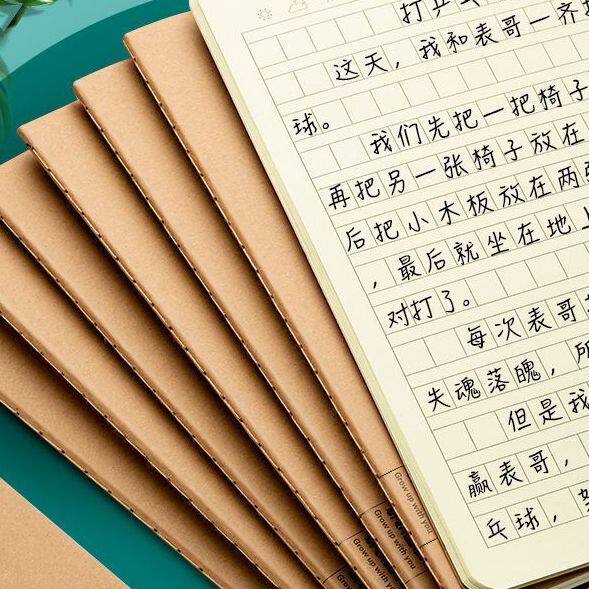 打乒乓
这天，我和表哥一齐
球。
我们先把一把椅子
再把另一张椅子放在
后把小木板放在两
，最后就坐在地上
对打了。
每次表哥
失魂落魄，所
但是我
赢表哥，
乒球，
Grow up with you
Grow up with you
Grow up with you
Grow up with you